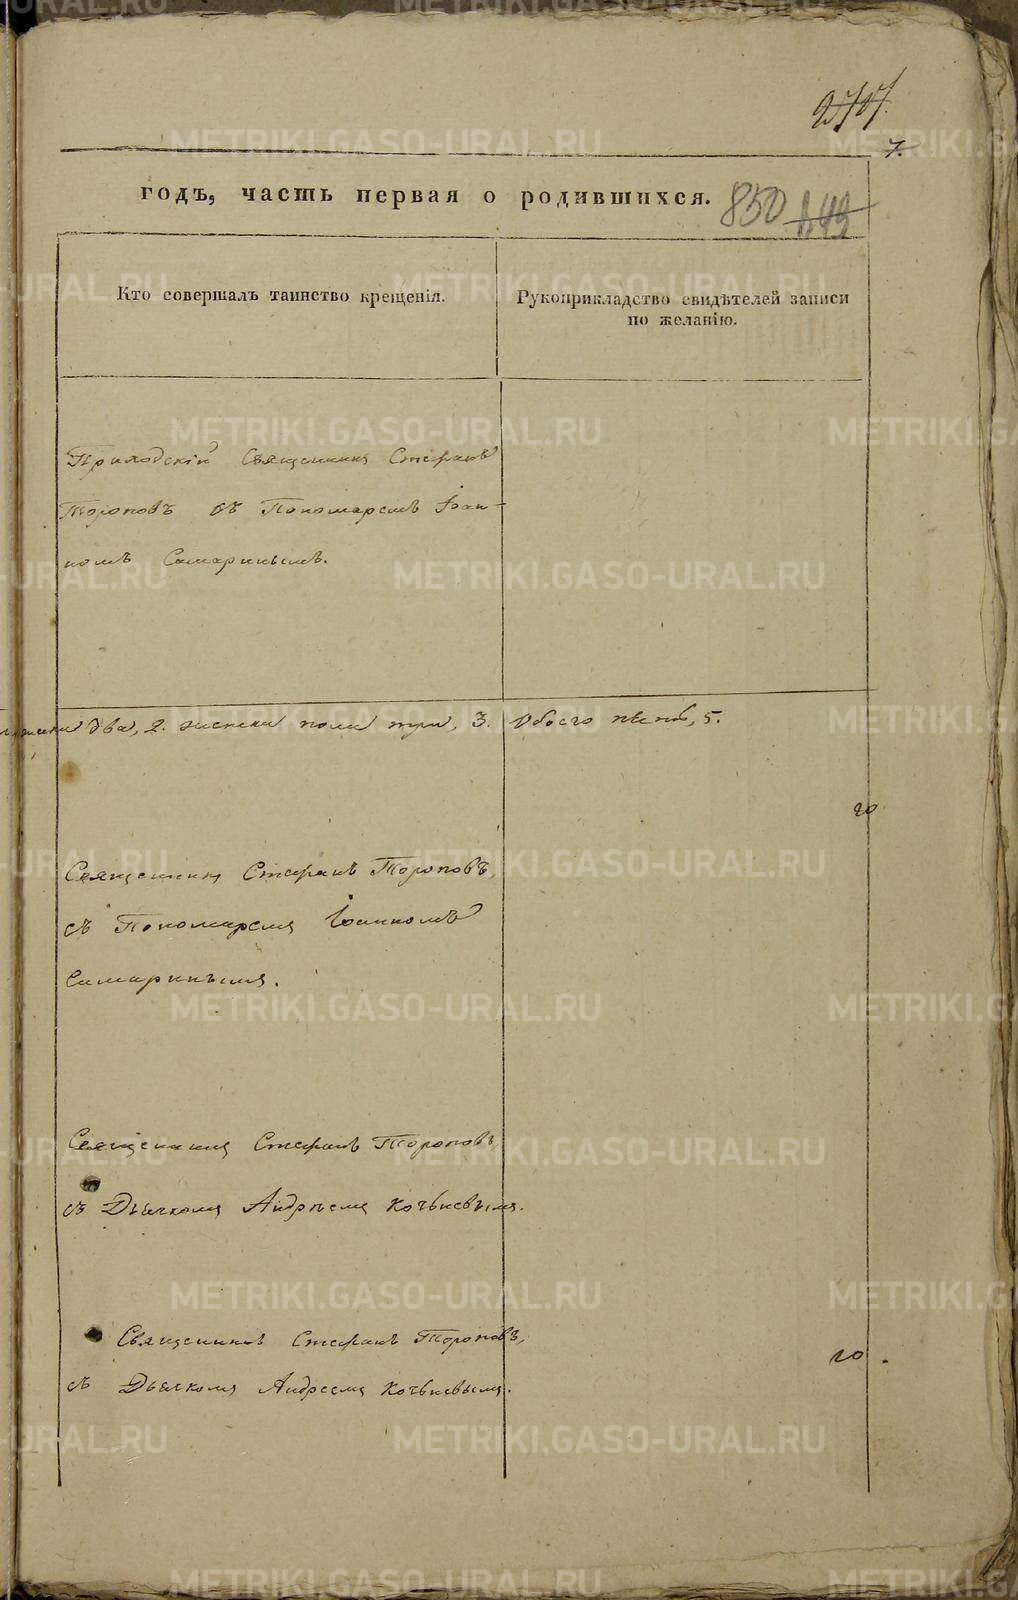 7.
годъ, часть первая о родившихся. 850
Кто совершалъ таинство крещенія.
Рукоприкладство свидѣтелей записи
по желанію.
Приходскій Священникъ Стефанъ
Тороповъ съ Пономаремъ Іоан-
номъ Самаринымъ.
два, 2. женска пола три, 3. Обоего пять, 5.
Священникъ Стефанъ Тороповъ,
съ Пономаремъ Іоанномъ
Самаринымъ.
Священникъ Стефанъ Тороповъ,
съ Дьячкомъ Андреемъ Кочневымъ.
Священникъ Стефанъ Тороповъ,
съ Дьячкомъ Андреемъ Кочневымъ.
METRIKI.GASO-URAL.RU